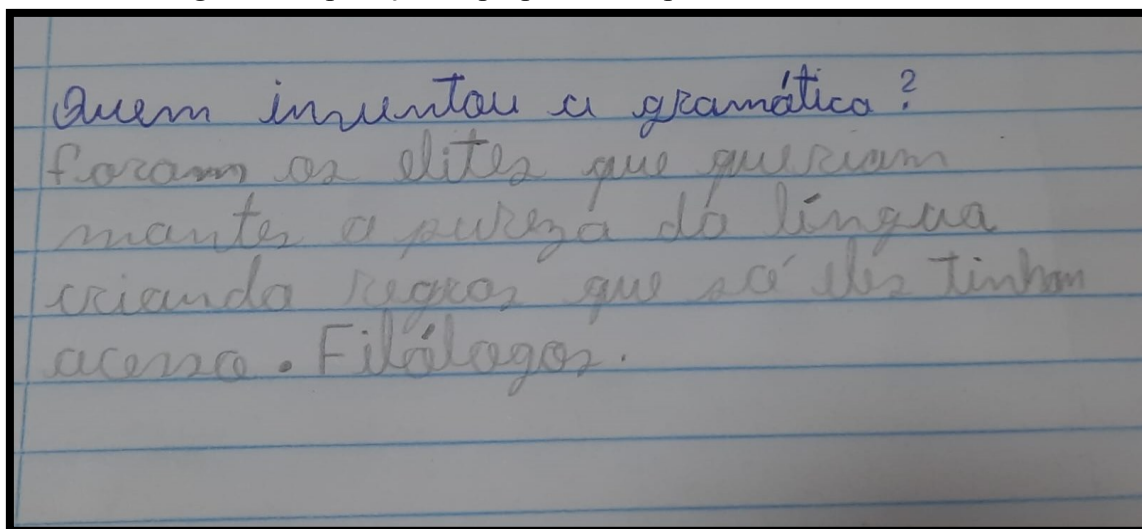 Quem inventou a gramática?
foram os elites que queriam
manter a pureza da língua
criando regras que só eles tinham
acesso. Filólogos.